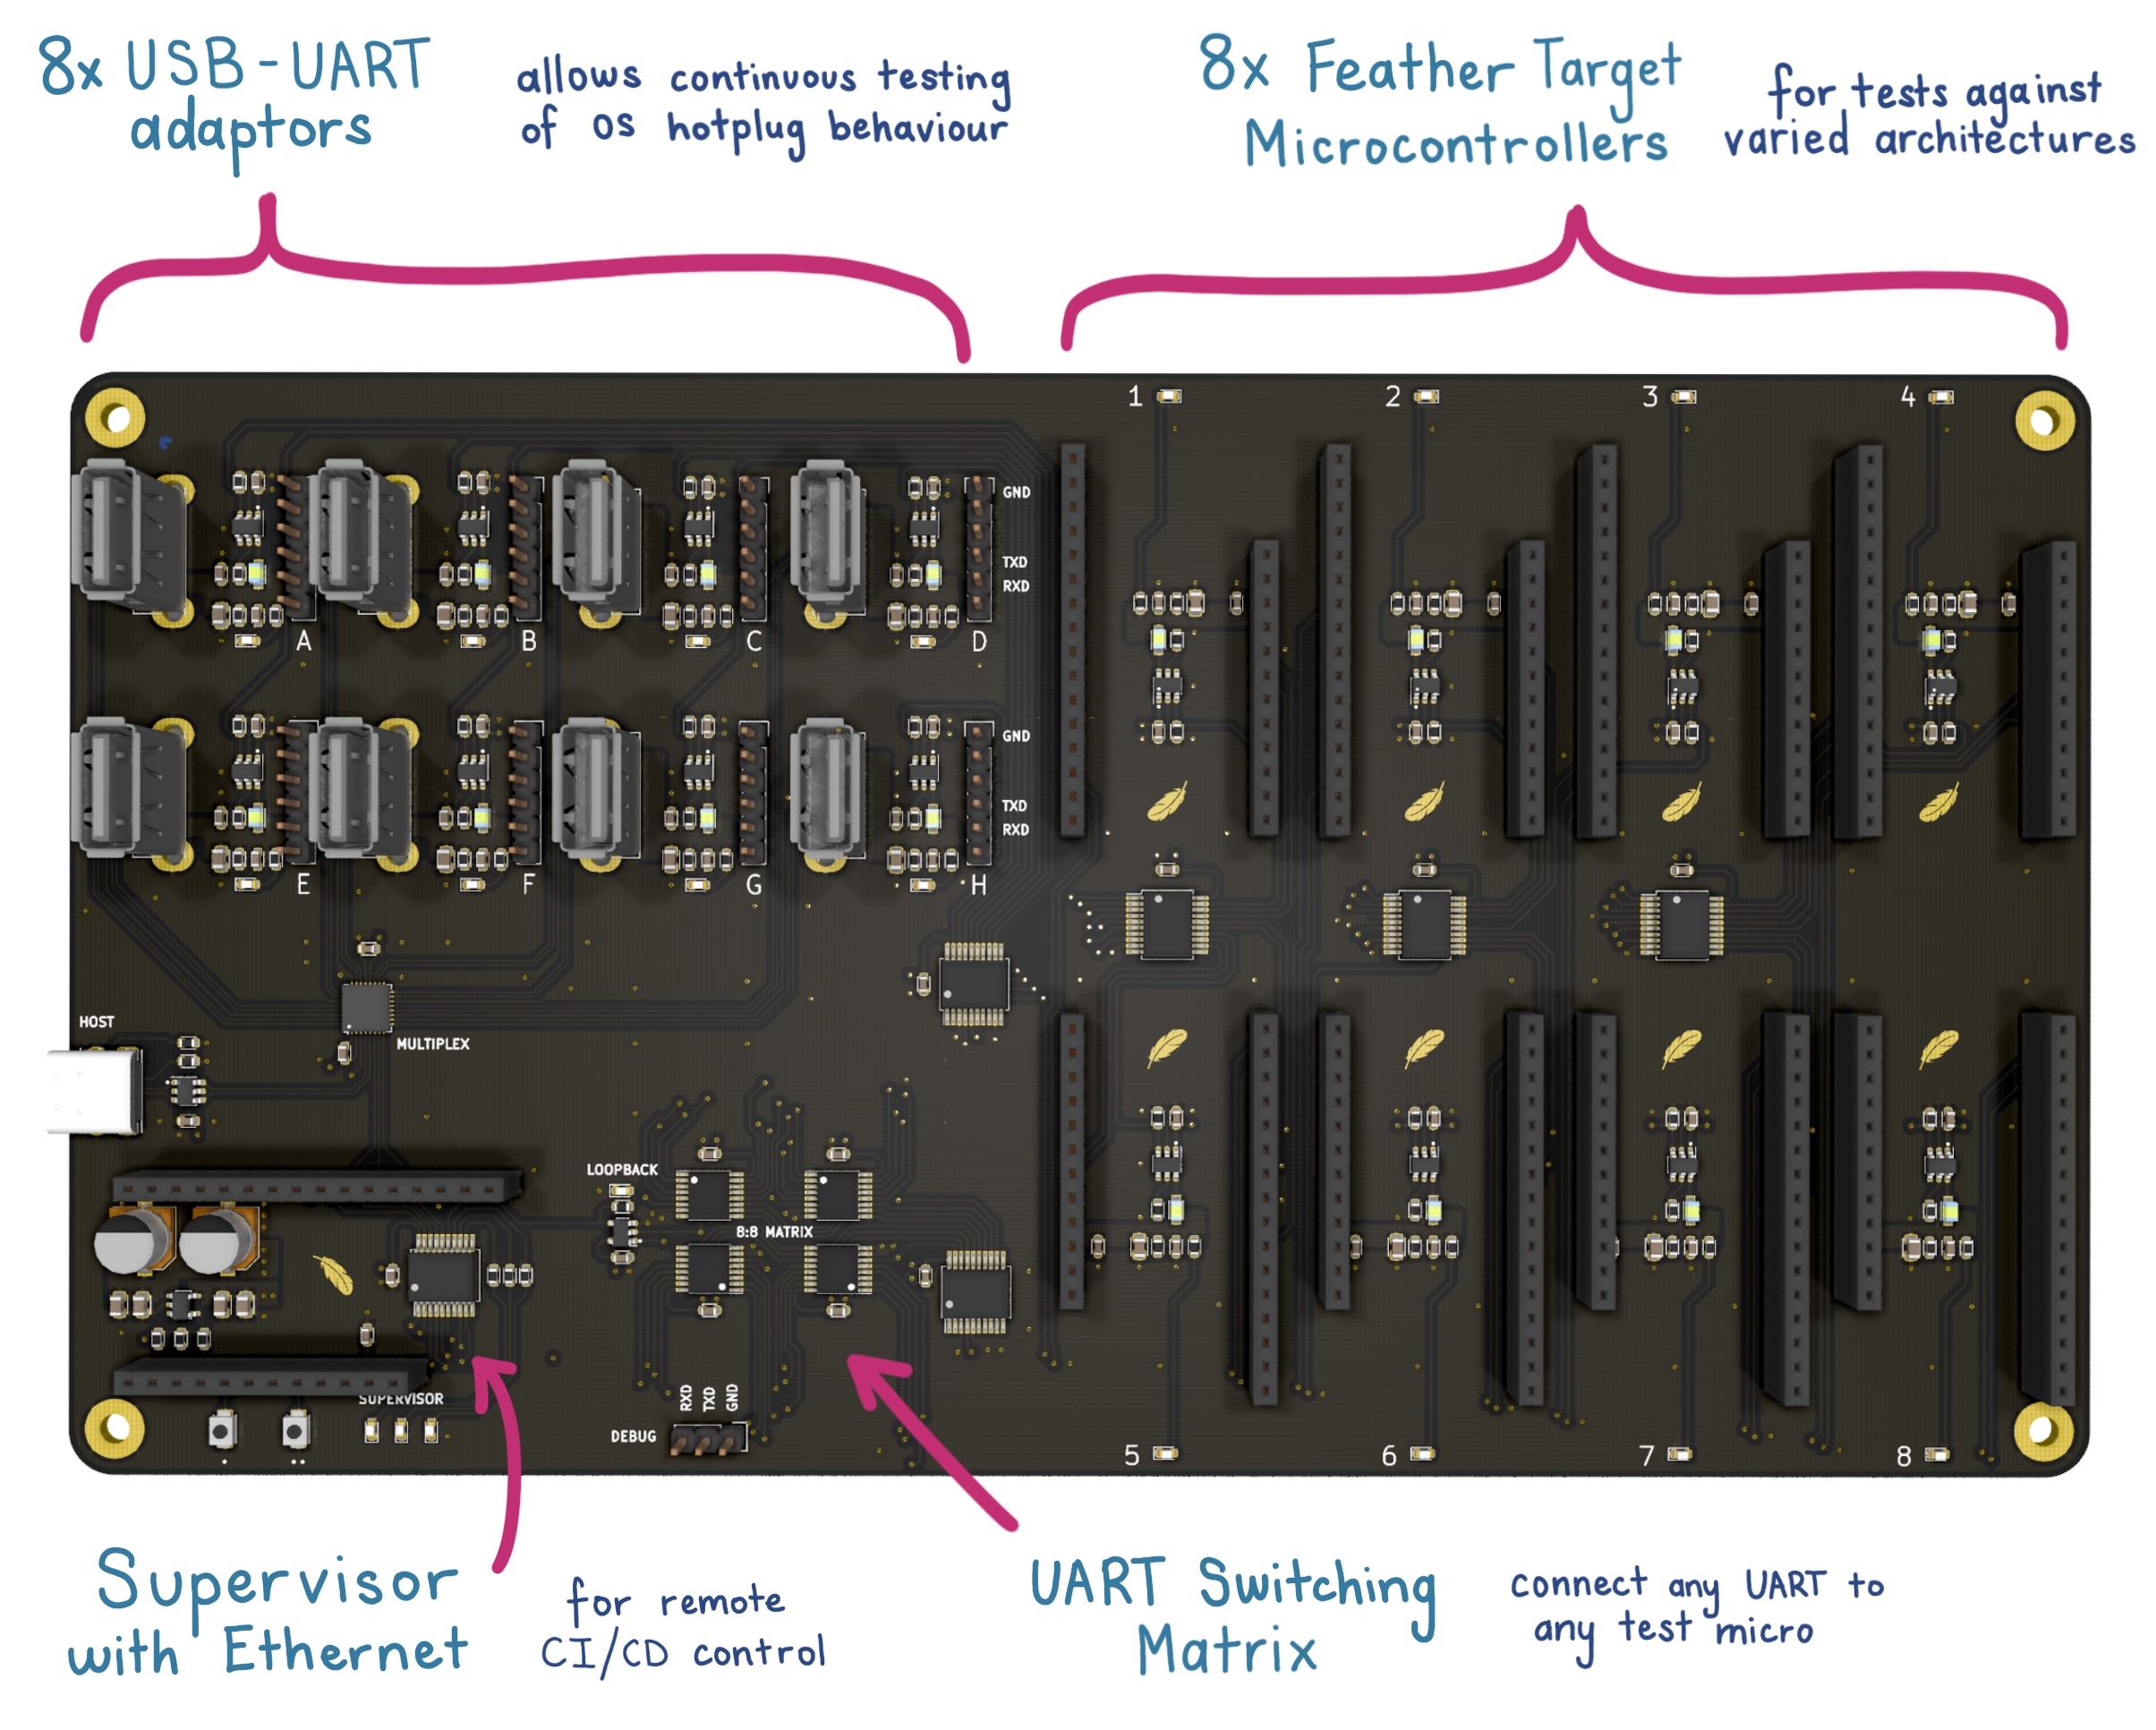 8x USB-UART
adaptors
allows continuous testing
of OS hotplug behaviour
8x Feather Target
Microcontrollers
for tests against
varied architectures
1
2
3
4
GND
TXD
RXD
A
B
C
D
GND
TXD
RXD
E
F
G
H
HOST
MULTIPLEX
LOOPBACK
8:8 MATRIX
SUPERVISOR
RXD
TXD
GND
DEBUG
5
6
7
8
Supervisor
with Ethernet
for remote
CI/CD control
UART Switching
Matrix
connect any UART to
any test micro